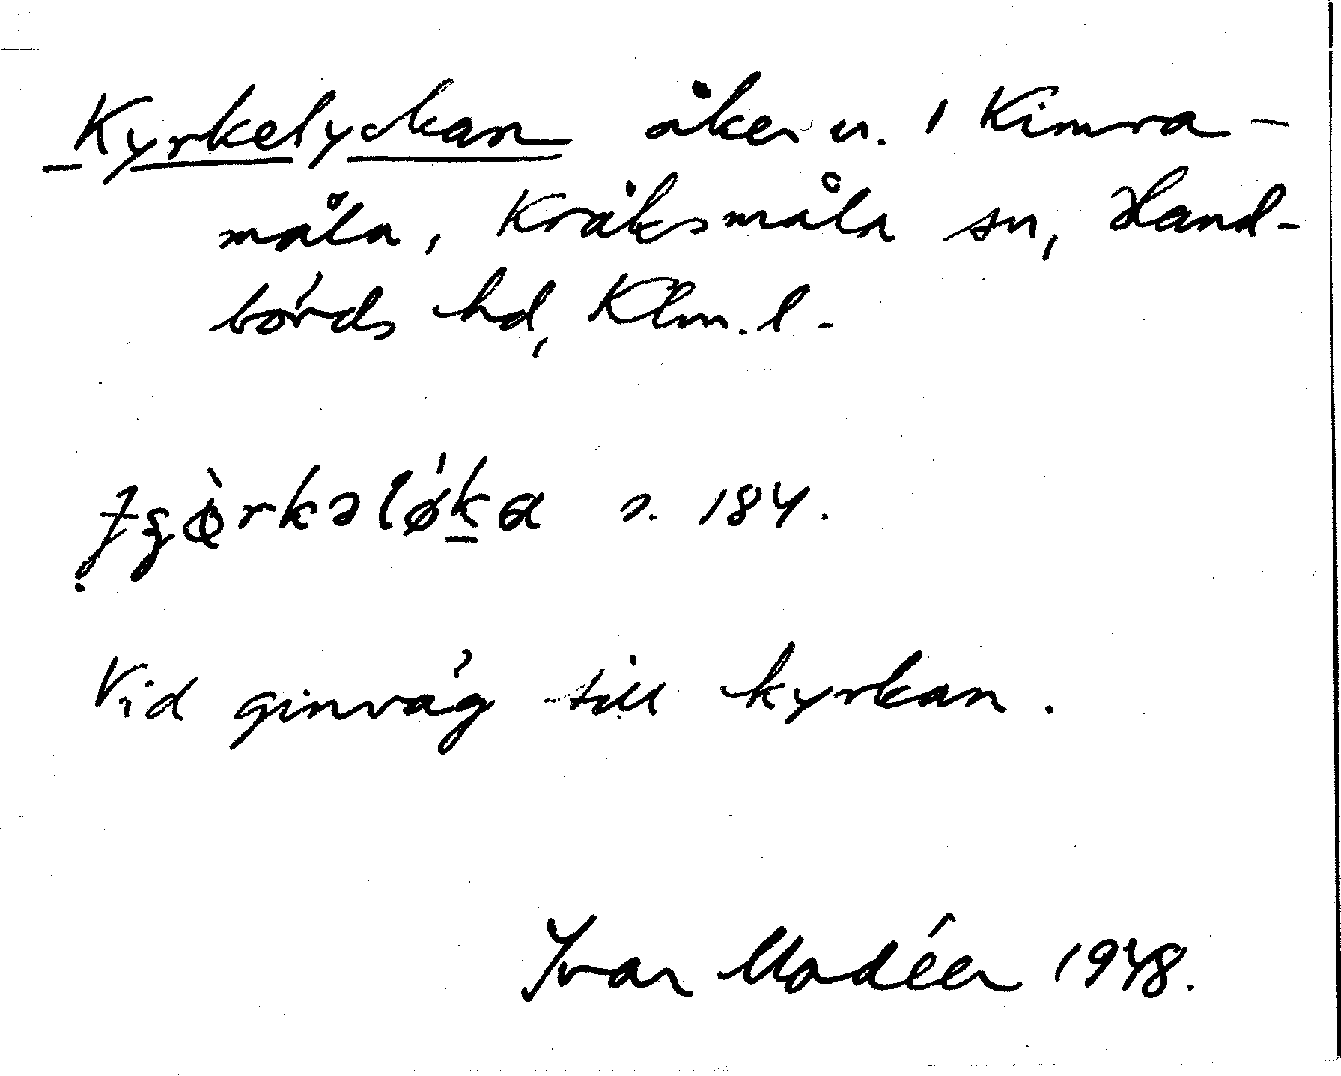 Kyrkelyckan åker n. i Kimra-
måla, Kråksmåla sn, Hand-
börds hd, Klm. l.
s. 184.
Vid ginväg till kyrkan.
Ivar Modéer 1948.